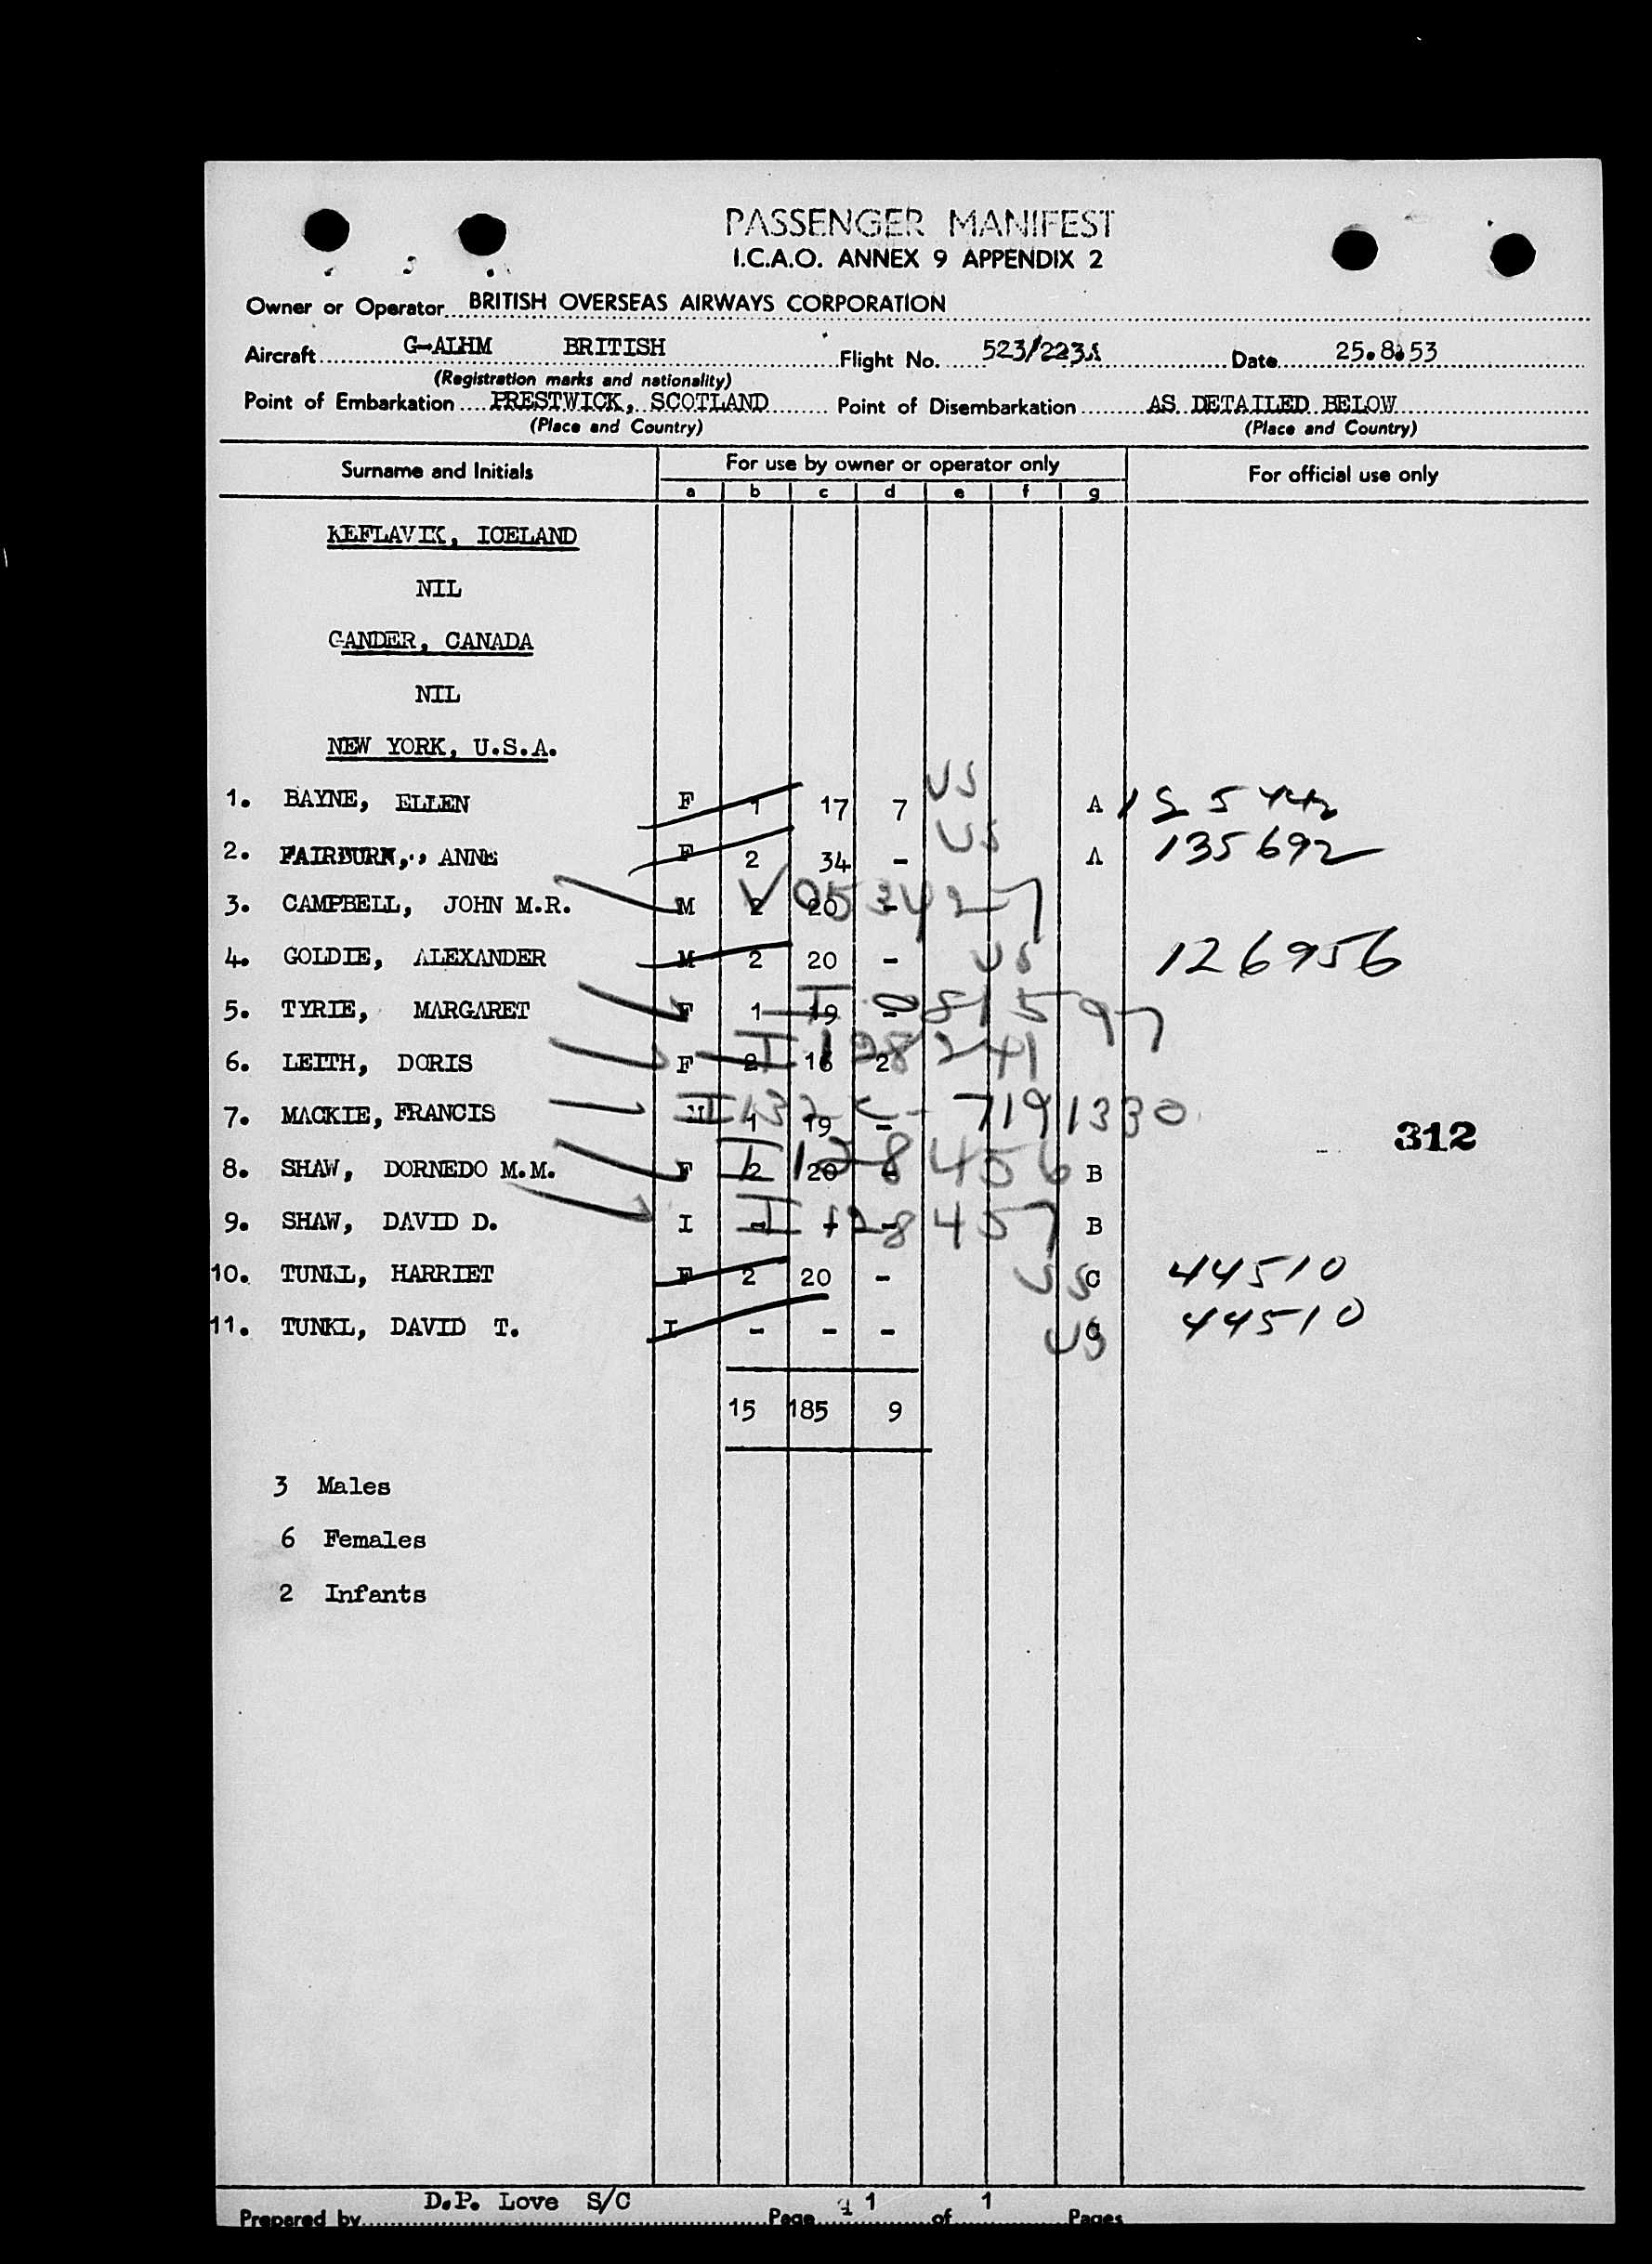 PASSENGER MANIFEST
I.C.A.O. ANNEX 9 APPENDIX 2
Owner or Operator BRITISH OVERSEAS AIRWAYS CORPORATION
Aircraft G-ALHM BRITISH Flight No. 523/223A Date 25.8.53
(Registration marks and nationality)
Point of Embarkation PRESTWICK, SCOTLAND Point of Disembarkation AS DETAILED BELOW
(Place and Country) (Place and Country)
Surname and Initials For use by owner or operator only For official use only
a b c d e f g
KEFLAVIK, ICELAND
NIL
GANDER, CANADA
NIL
NEW YORK, U.S.A.
1. BAYNE, ELLEN F 1 17 7 US A
2. FAIRBURN, ANNE F 2 34 - US A 135692
3. CAMPBELL, JOHN M.R. M 2 20 - V 053427
4. GOLDIE, ALEXANDER M 2 20 - US 126956
5. TYRIE, MARGARET F 1 19 - I 081597
6. LEITH, DORIS F 2 16 2 I 128241
7. MACKIE, FRANCIS M 1 19 - 7191330
312
8. SHAW, DORNEDO M.M. F 2 20 - I 128456 B
9. SHAW, DAVID D. I - - - I 128457 B
10. TUNKL, HARRIET F 2 20 - US C 44510
11. TUNKL, DAVID T. I - - - US C 44510
15 185 9
3 Males
6 Females
2 Infants
Prepared by D.P. Love S/C Page 1 of 1 Pages